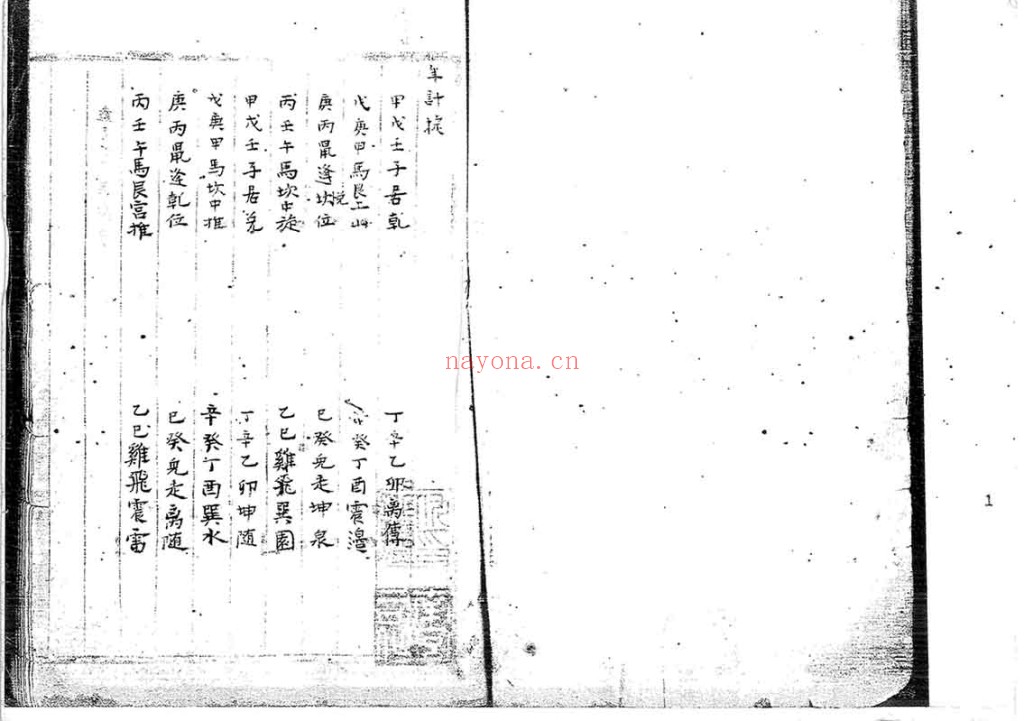 年計捩
甲戊壬子居乾
丁辛乙卯离傳
戊庚甲馬艮上山
癸丁酉震邉
庚丙鼠逢坎位
悦
己癸兎走坤泉
丙壬午馬坎中旋
乙巳雞飛巽園
甲戊壬子居兌
丁辛乙卯坤随
戊庚甲馬坎中推
辛癸丁酉巽水
庚丙鼠逢乾位
已癸兎走离随
丙壬午馬艮宮推
乙巳雞飛震雷
nayona.cn
1